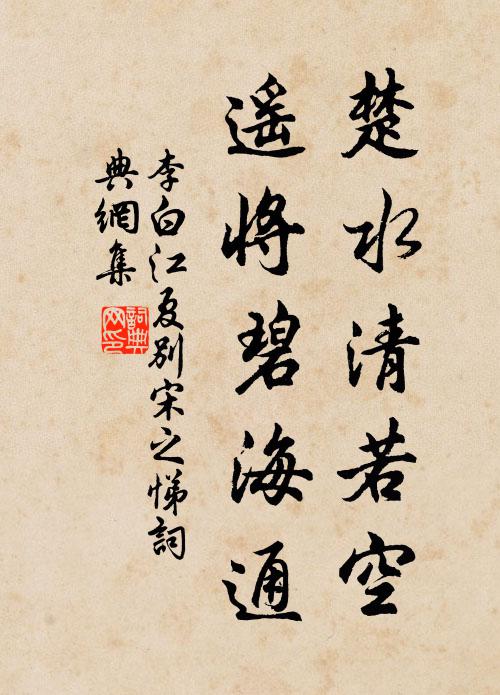 楚水清若空
遥將碧海通
李白江夏别宋之悌詞
典網集
詞典网印